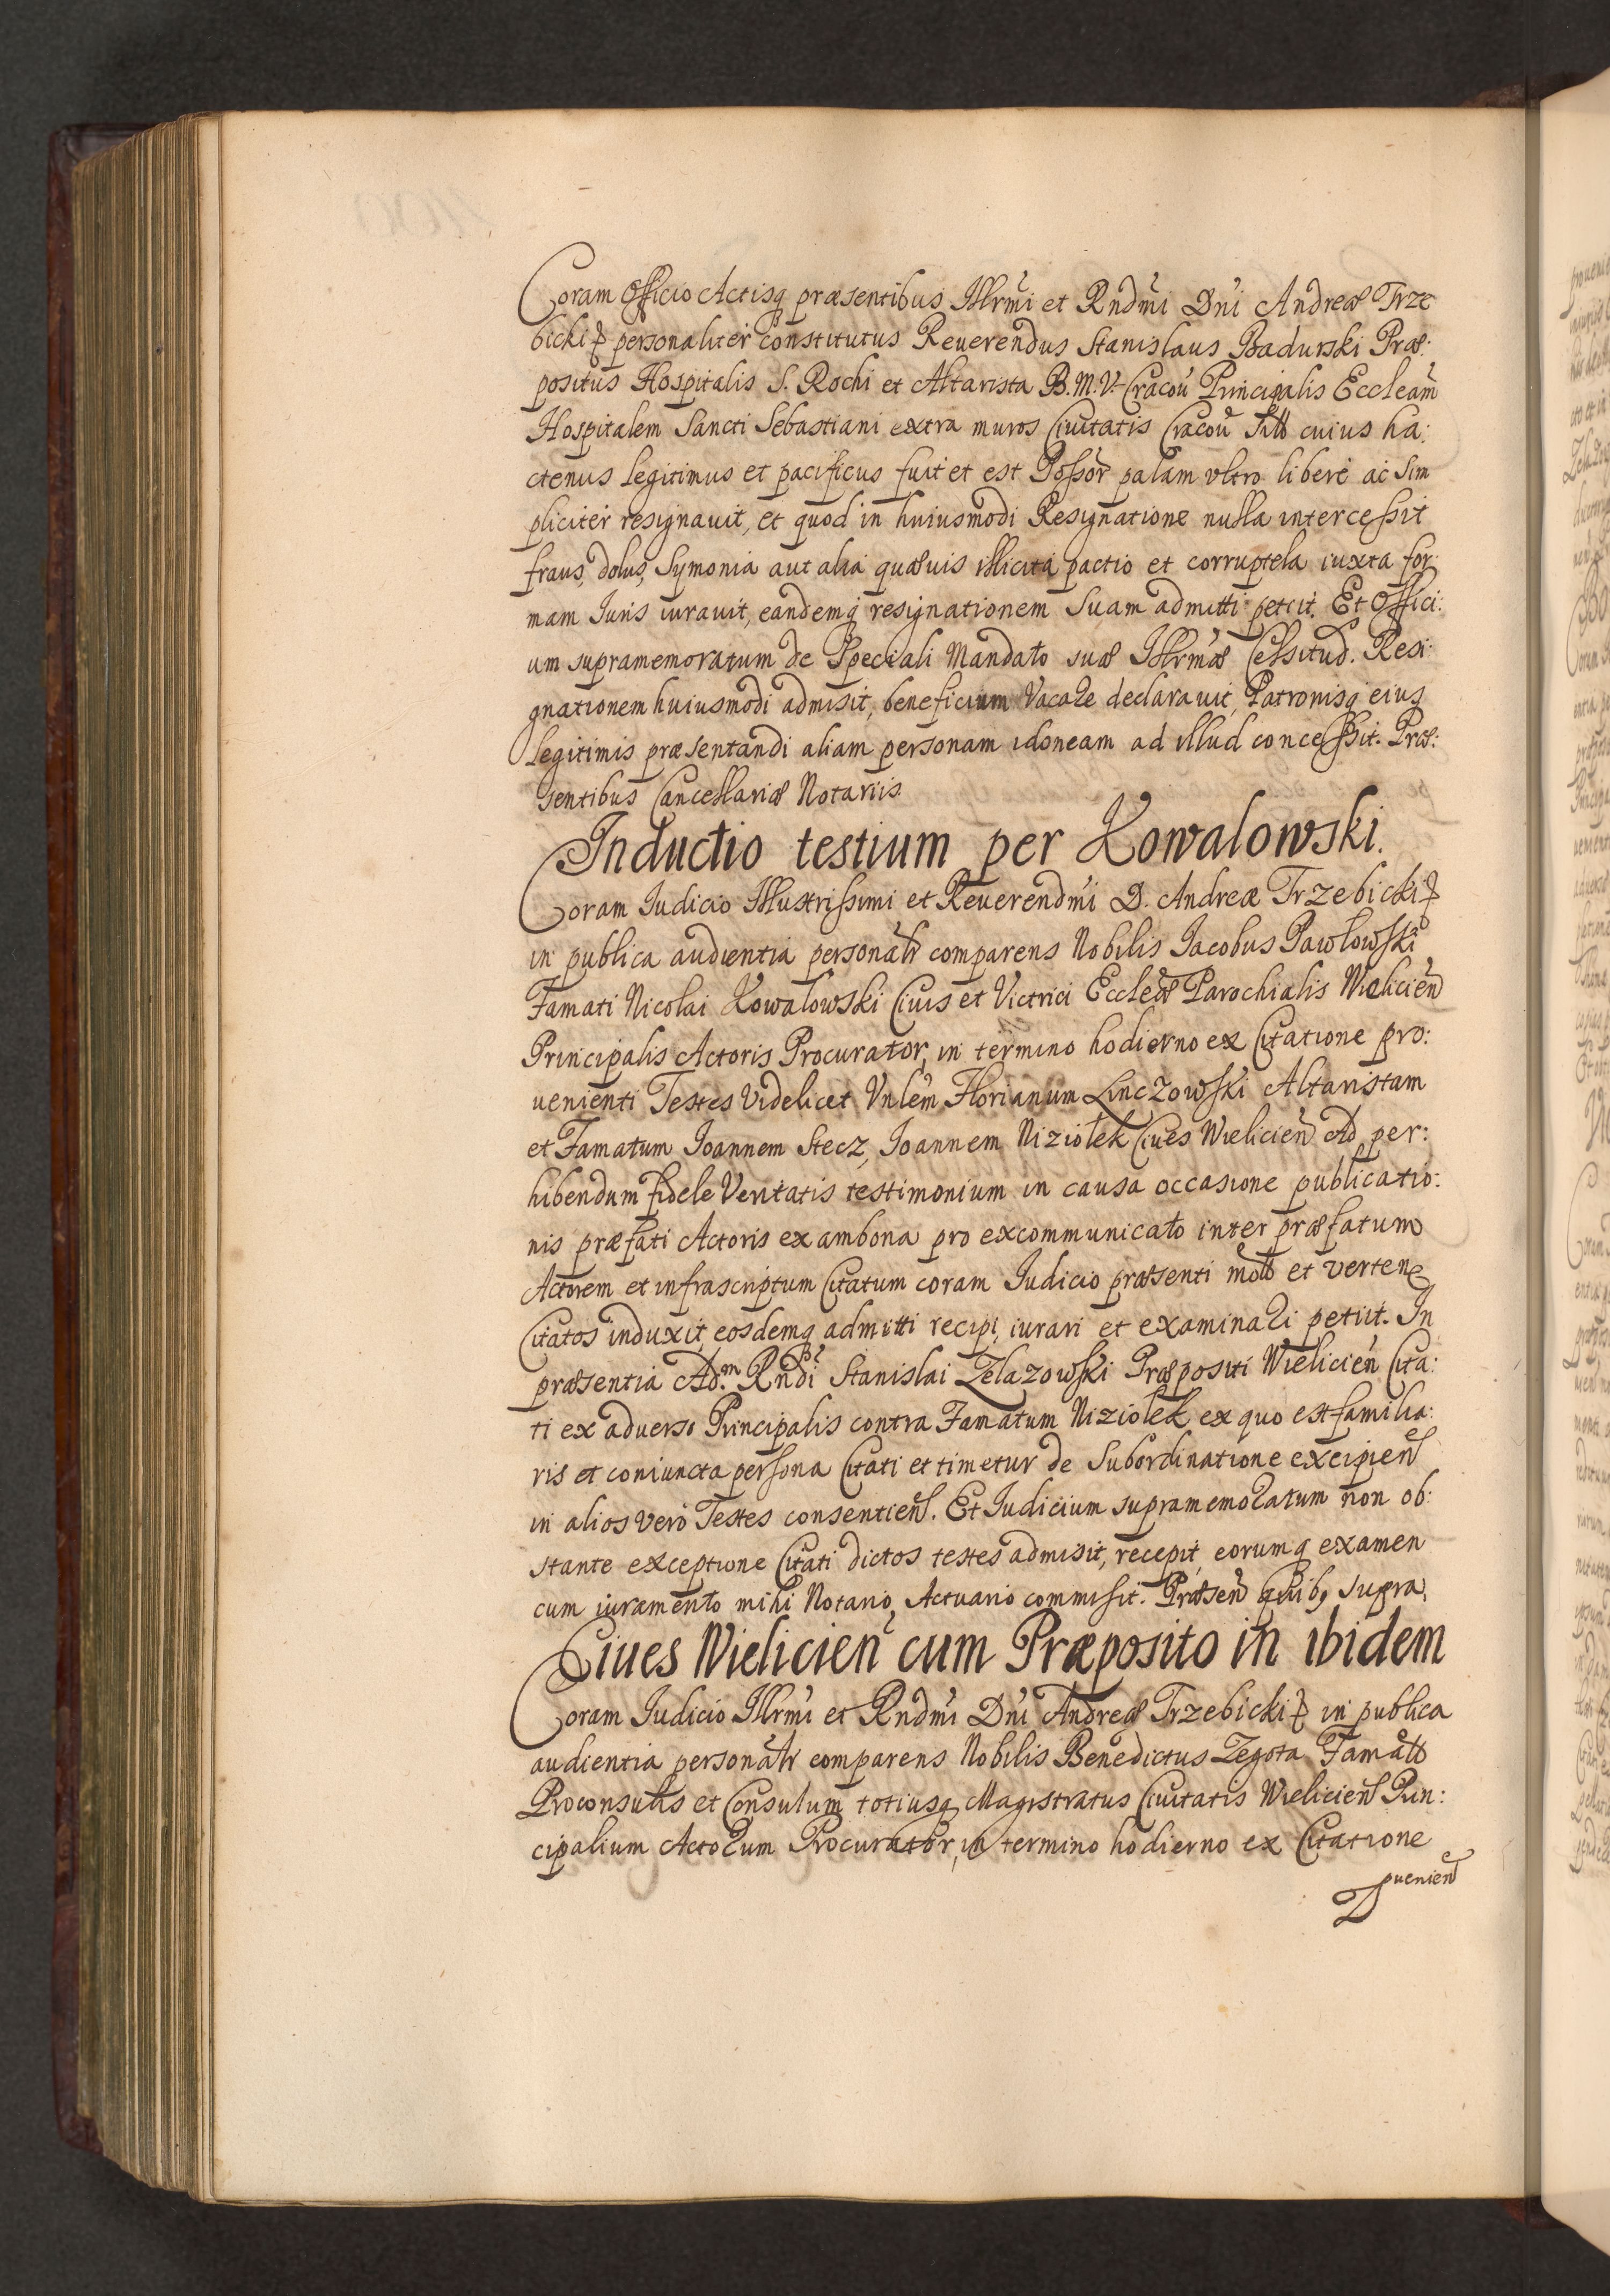 Coram Officio Actisq præsentibus Illrmi et Rndmi Dni Andreæ Trze
bicki personaliter constitutus Reuerendus Stanislaus Badurski Præ:
positus Hospitalis S. Rochi et Altarista B.M.V. Cracou Principalis Eccleam
Hospitalem Sancti Sebastiani extra muros Ciuitatis Cracou cuius ha:
ctenus legitimus et pacificus fuit et est Possor palam vltro libere ac sim
pliciter resignauit, et quod in huiusmodi Resignatione nulla intercessit
fraus, dolus, Symonia aut alia quæuis illicita pactio et corruptela iuxta for
mam Iuris iurauit, eandemq resignationem suam admitti petiit. Et Offici:
um supramemoratum de Speciali Mandato suæ Illrmæ Celsitud. Resi:
gnationem huiusmodi admisit, beneficium Vacare declarauit, Patronisq eius
legitimis præsentandi aliam personam idoneam ad illud concessit. Præ:
sentibus Cancellariæ Notariis
Inductio testium per Kowalowski.
Coram Iudicio Illustrissimi et Reuerendmi D. Andreæ Trzebicki
in publica audientia personalr comparens Nobilis Iacobus Pawłowski
Famati Nicolai Kowalowski Ciuis et Victrici Eccleæ Parochialis Wielicien
Principalis Actoris Procurator, in termino hodierno ex Citatione pro:
uenienti Testes Videlicet Vnlem Florianum Linczowski Altaristam
et Famatum Ioannem Stecz, Ioannem Niziołek Ciues Wielicien Ad per:
hibendum fidele Veritatis testimonium in causa occasione publicatio:
nis præfati Actoris ex ambona pro excommunicato inter præfatum
Actorem et infrascriptum Citatum coram Iudicio præsenti mota et verten
Citatos induxit, eosdemq admitti recipi, iurari et examinari petiit. In
præsentia Adm Rndi Stanislai Zelazowski Præpositi Wielicien Cita:
ti ex aduerso Principalis contra Famatum Niziołek ex quo est familia:
ris et coniuncta persona Citati et timetur de Subordinatione excipien
in alios vero Testes consentien. Et Iudicium supramemoratum non ob:
stante exceptione Citati dictos testes admisit, recepit, eorumq examen
cum iuramento mihi Notario, Actuario commisit. Præsen quibq supra.
Ciues Wielicien cum Præposito in ibidem
Coram Iudicio Illrmi et Rndmi Dni Andreæ Trzebicki in publica
audientia personalr comparens Nobilis Benedictus Zegota Famatt
Proconsulis et Consulum totiusq Magistratus Ciuitatis Wielicien Prin:
cipalium Actorum Procurator, in termino hodierno ex Citatione
puenien